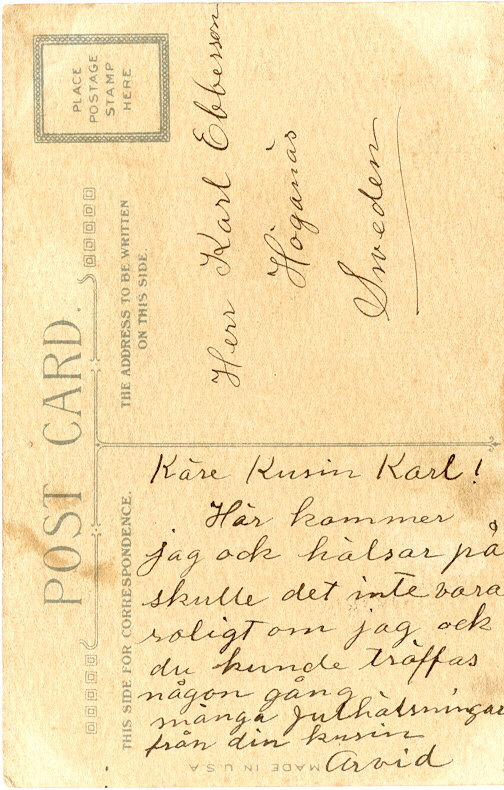 POST CARD.
PLACE
POSTAGE
STAMP
HERE
THE ADDRESS TO BE WRITTEN
ON THIS SIDE.
Herr Karl Ebberson
Höganäs
Sweden
THIS SIDE FOR CORRESPONDENCE.
Käre Kusin Karl!
Här kommer
jag ock hälsar på
skulle det inte vara
roligt om jag ock
du kunde träffas
någon gång
många Julhälsningar
från din kusin
Arvid
MADE IN U.S.A